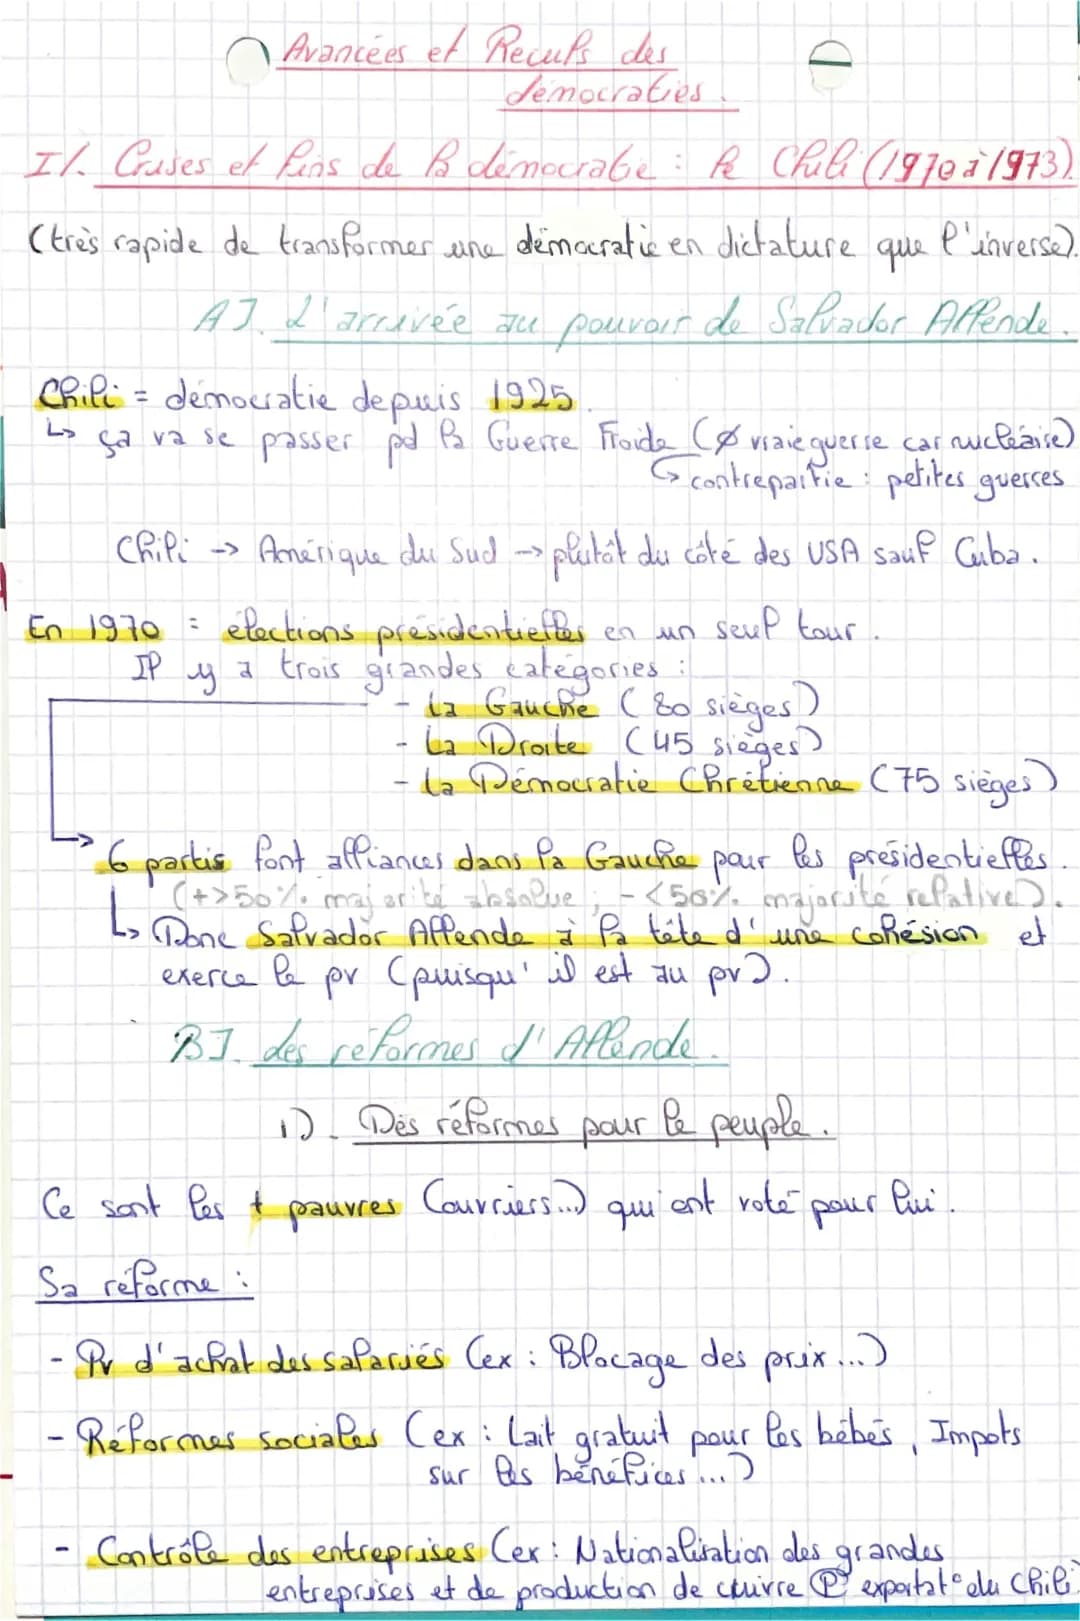 Avancées et Reculs des
démocraties.
I/. Crises et fins de la démocratie : le Chili (1970 à 1973).
(très rapide de transformer une démocratie en dictature que l'inverse).
A]. L'arrivée au pouvoir de Salvador Allende.
Chili = démocratie depuis 1925.
↳ ça va se passer pd la Guerre Froide (Ø vraie guerre car nucléaire)
↳ contrepartie : petites guerres
Chili -> Amérique du Sud -> plutôt du côté des USA sauf Cuba.
En 1970 : élections présidentielles en un seul tour.
Il y a trois grandes catégories :
- La Gauche (80 sièges)
- La Droite (45 sièges)
- La Démocratie Chrétienne (75 sièges)
-> 6 partis font alliances dans la Gauche pour les présidentielles.
(+>50% majorité absolue ; -<50% majorité relative).
↳ Donc Salvador Allende à la tête d'une cohésion et
exerce le pv (puisqu'il est au pv).
B]. des réformes d'Allende.
1). Des réformes pour le peuple.
Ce sont les + pauvres (ouvriers...) qui ont voté pour lui.
Sa réforme :
- Pv d'achat des salariés (ex : Blocage des prix...)
- Réformes sociales (ex : Lait gratuit pour les bébés, Impots
sur les bénéfices...)
- Contrôle des entreprises (ex : Nationalisation des grandes
entreprises et de production de cuivre exportat° du Chili)